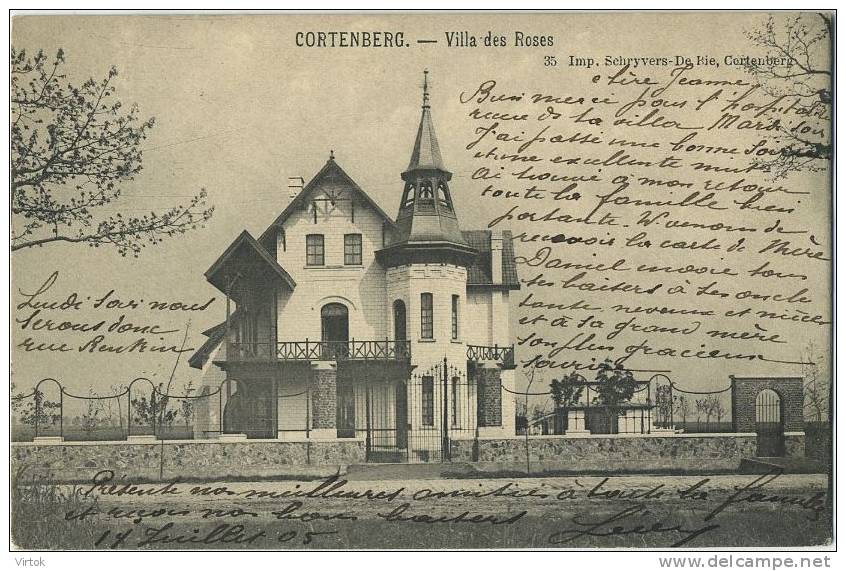 CORTENBERG. — Villa des Roses
35 Imp. Schryvers-De Bie, Cortenberg
Chère Jeanne
Bien merci pour l'hospitali
de la villa Mardi soir
J'ai passé une bonne soirée
et une excellente nuit
Ai trouvé à mon retour
toute la famille bien
portante. Ns venons de
recevoir la carte de Mère
Daniel envoie tous
ses baisers à ses oncle
tante neveux et nièce
et à sa grand mère
son plus gracieux
sourire
Lundi soir nous
serons donc
rue Renkin
Présente nos meilleures amitiés à toute la famille
et reçois nos bons baisers
14 Juillet 05
Virtok
http://www.delcampe.net